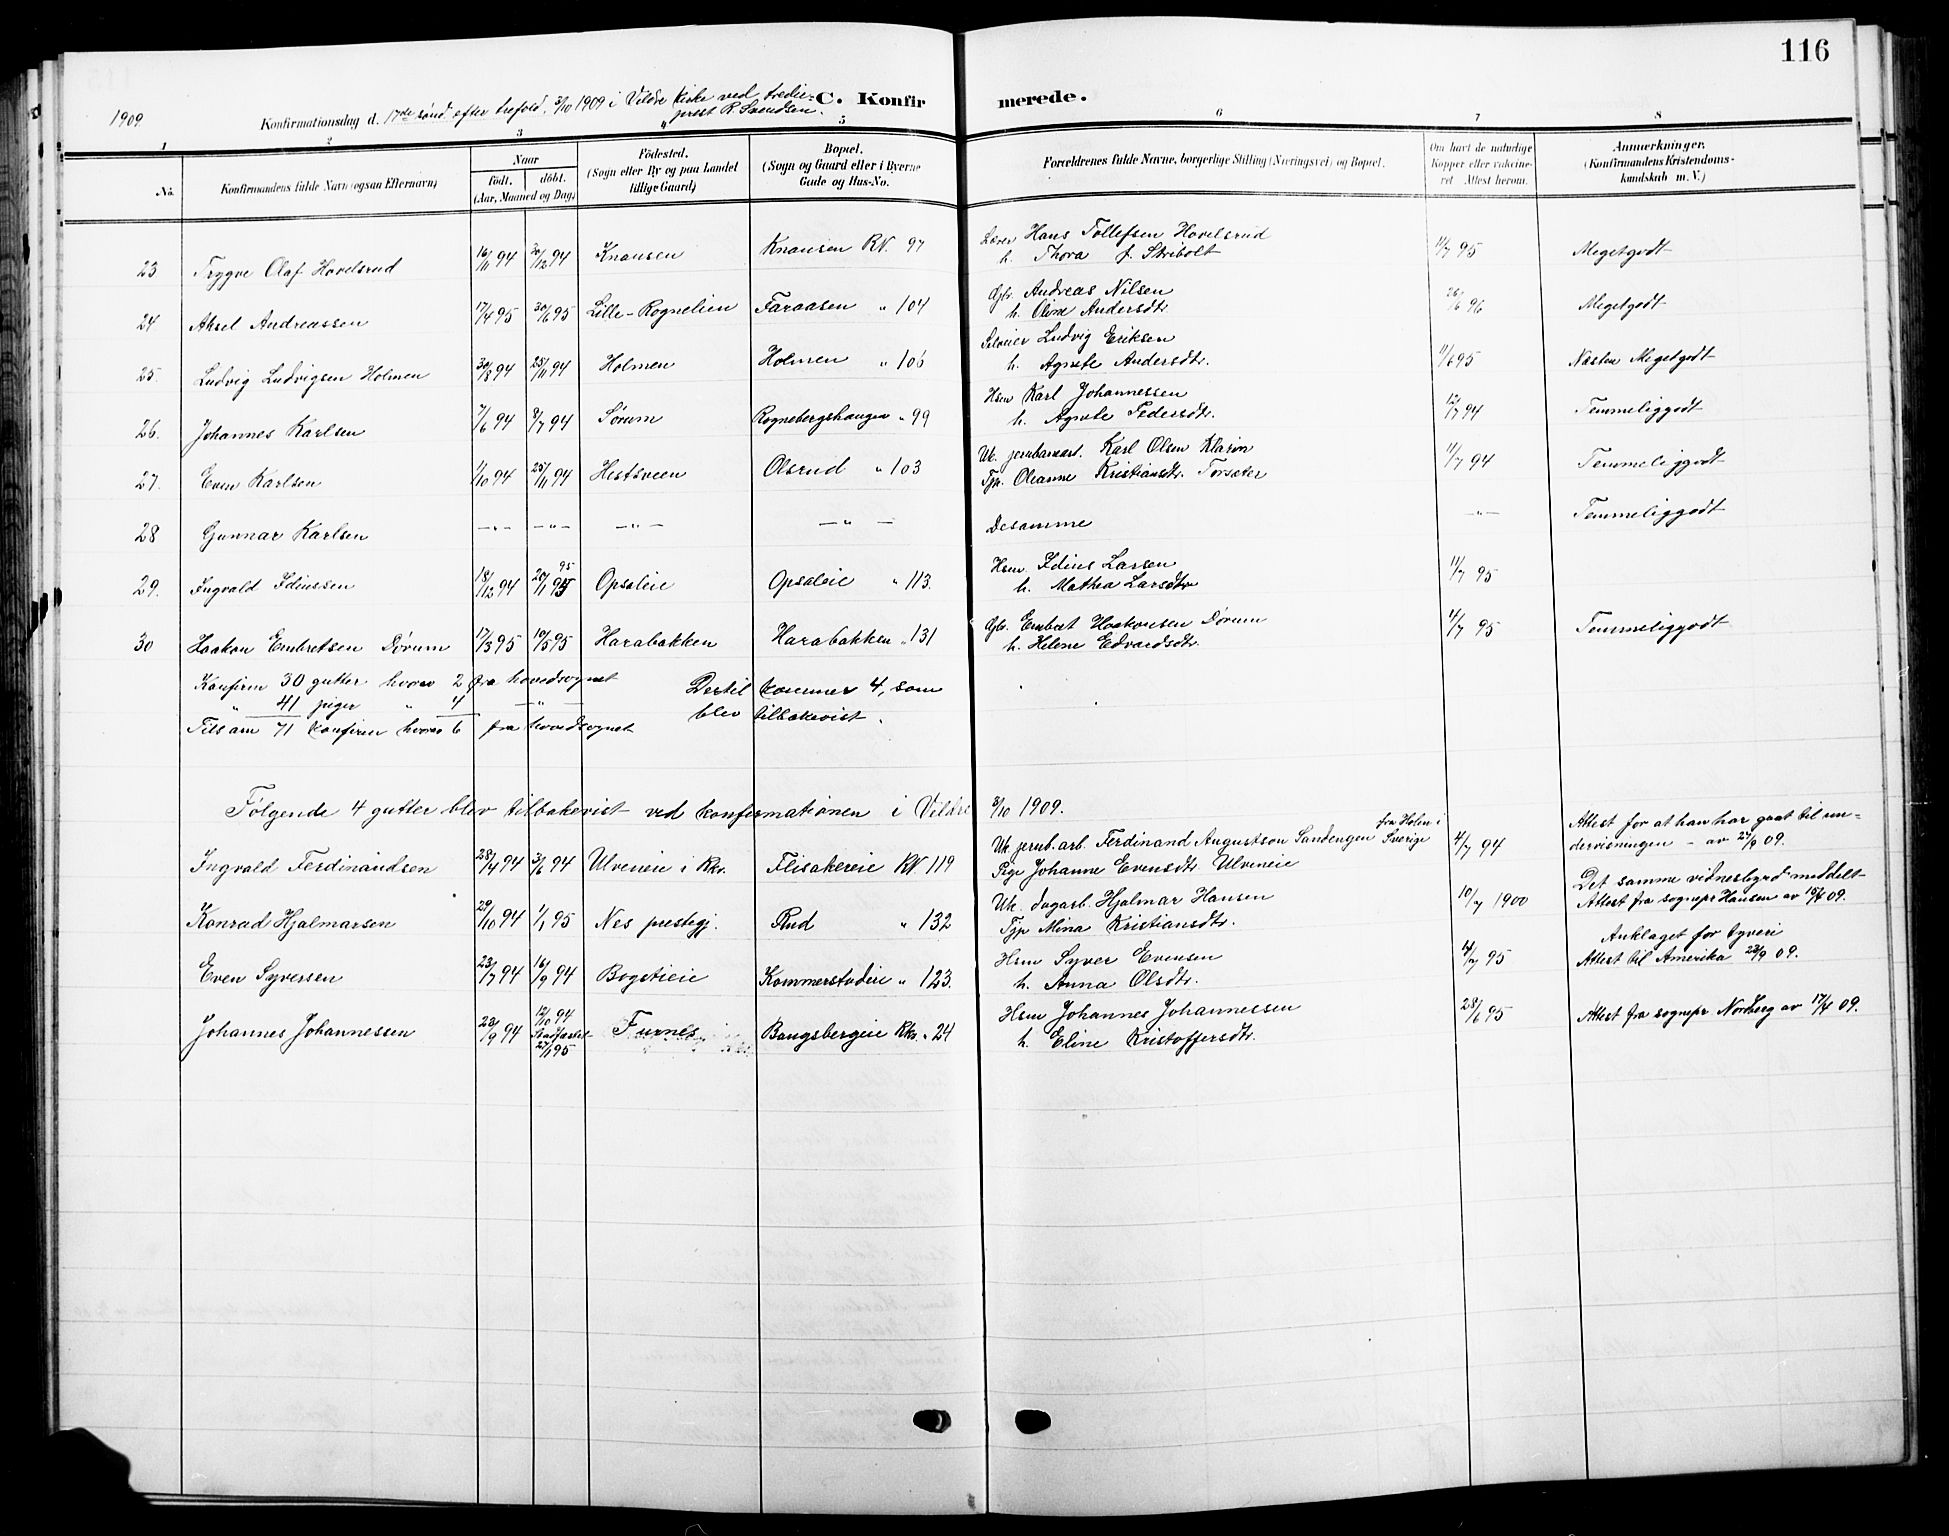 116
1909
Konfirmationsdag d. 17de sønd. efter trefold. 3/10 1909 i Vildre kirke ved tredie-
prest R. Svendsen.
C. Konfirmerede.
1 2 3 4 5 6 7 8
No.
Konfirmandens fulde Navn (ogsaa Efternavn)
Naar
født. døbt.
(Aar, Maaned og Dag)
Fødested.
(Sogn eller By og paa Landet
tillige Gaard)
Bopæl.
(Sogn og Gaard eller i Byerne
Gade og Hus-No.
Forældrenes fulde Navne, borgerlige Stilling (Næringsvei) og Bopæl.
Om havt de naturlige
Kopper eller vakcine-
ret Attest herom.
Anmerkninger.
(Konfirmandens Kristendoms-
kundskab m. V.)
23 Trygve Olaf Hovelsrud 16/11 94 30/12 94 Knausen Knausen RV. 97 Lærer Hans Tollefsen Hovelsrud 11/7 95 Megetgodt
h. Thora f. Skribolt
24 Aksel Andreassen 17/4 95 30/6 95 Lille-Rognelien Faraasen " 104 Gbr. Andreas Nilsen 26/6 96 Megetgodt
h. Oline Andersdtr.
25. Ludvig Ludvigsen Holmen 30/8 94 25/11 94 Holmen Holmen " 106 Selveier Ludvig Eriksen 11/6 95 Næsten Megetgodt
h. Agnete Andersdtr.
26. Johannes Karlsen 7/6 94 8/7 94 Sørum Rognebergshaugen " 99 Hsm Karl Johannessen 94 Temmeliggodt
h. Agnete Pedersdtr.
27. Even Karlsen 1/10 94 25/11 94 Hestsveen Olsrud " 103 Uk. jernbanearb. Karl Olsen 11/7 94 Temmeliggodt
Tjp. Oleanne Kristiansdtr. Torsæter
28 Gunnar Karlsen —"— —"— —"— —"— Desamme —"— Temmeliggodt
29. Ingvald Idiussen 18/12 94 20/1 95 95 Opsaleie Opsaleie " 113. Hsm. Idius Larsen 11/7 95
h. Mathea Larsdtr
30 Haakon Embretsen Dørum 17/3 95 10/5 95 Harabakken Harabakken " 131 Gbr. Embret Haakonsen Dørum 4/7 95 Temmeliggodt
h. Helene Edvardsdtr.
Konfirm 30 gutter hvorav 2 fra hovedsognet Dertil kommer 4, som
" 41 piger " 4 —"— blev tilbakevist.
Tilsam 71 konfirm hvorav 6 fra hovedsognet
Følgende 4 gutter blev tilbakevist ved konfirmationen i Vildre 3/10 1909.
Ingvald Ferdinandsen 28/4 94 3/6 94 Ulveneie i Rkr. Flisakereie RV. 119 Uk. jernb. arb. Ferdinand Augustson Sandengen fra Holm i Sverige 4/7 94 Attest for at han har gaat til un-
dervisningen – av 27/9 09.
Pige Johanne Evensdtr. Ulveneie
Konrad Hjalmarsen 29/10 94 1/1 95 Nes prestegj. Rud " 132 Uk. dagarb. Hjalmar Hansen 10/7 1900 Det samme vidnesbyrd meddelt
Tjp Mina Kristiansdtr. Attest fra sognepr Hansen av 09.
Even Syversen 23/7 94 16/9 94 Bogstieie Kommerstadeie " 123. Hsm Syver Evensen 95 Anklaget for tyveri
h. Anna Olsdtr. Attest til Amerika 09.
Johannes Johannessen 23/9 94 12/10 94 Stadfæstet 27/1 95 Furnes Bangsbergeie Rkr. " 24 Hsm Johannes Johannessen 28/6 95 Attest fra sognepr Nordberg av 09.
h. Eline Kristoffersdtr.